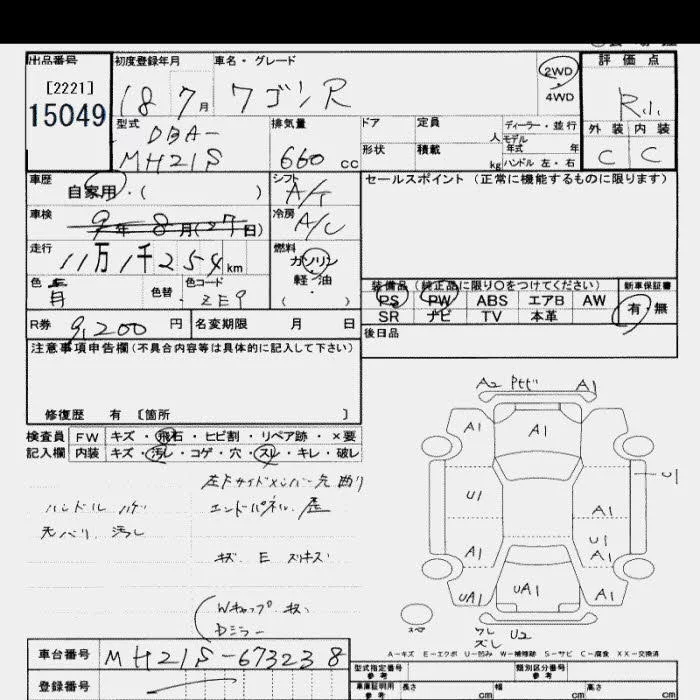 出品番号 初度登録年月 車名・グレード 評価点
[2221]
15049
18 7月 ワゴンR
2WD
4WD
R小
型式 DBA-
MH21S
排気量
660 cc
ドア 定員 人
形状 積載 kg
ディーラー・並行
モデル年式 年
ハンドル 左・右
外装 内装
C C
車歴
自家用・( )
シフト
A/T
セールスポイント (正常に機能するものに限ります)
車検
9年8月(27日)
冷房
A/C
走行
11万1千254km
燃料
ガソリン
軽・油
( )
色
青
色替
色コード
ZE9
装備品 (純正品に限り〇をつけてください) 新車保証書
PS PW ABS エアB AW
SR ナビ TV 本革
有・無
R券 9,200円 名変期限 月 日
後日品
注意事項申告欄 (不具合内容等は具体的に記入して下さい)
修復歴 有 〔箇所 〕
検査員 FW キズ・飛石・ヒビ割・リペア跡・×要
記入欄 内装 キズ・汚レ・コゲ・穴・スレ・キレ・破レ
左下サイドメンバー先曲り
ハンドルハゲ エンドパネル歪
天バリ汚レ
キズ E スリキズ
Wキャップ
Dミラー
A2 A1
A1 A1
U1 U
A1
U1
A1 A1
UA1 UA1 A1
スペア
ワレ U2
ズレ
A-キズ E-エクボ U-凹み W-補修跡 S-サビ C-腐食 XX-交換済
車台番号 MH21S-673238
登録番号
型式指定番号 参考 類別区分番号 参考
車庫証明用 参考 長さ cm 幅 cm 高さ cm